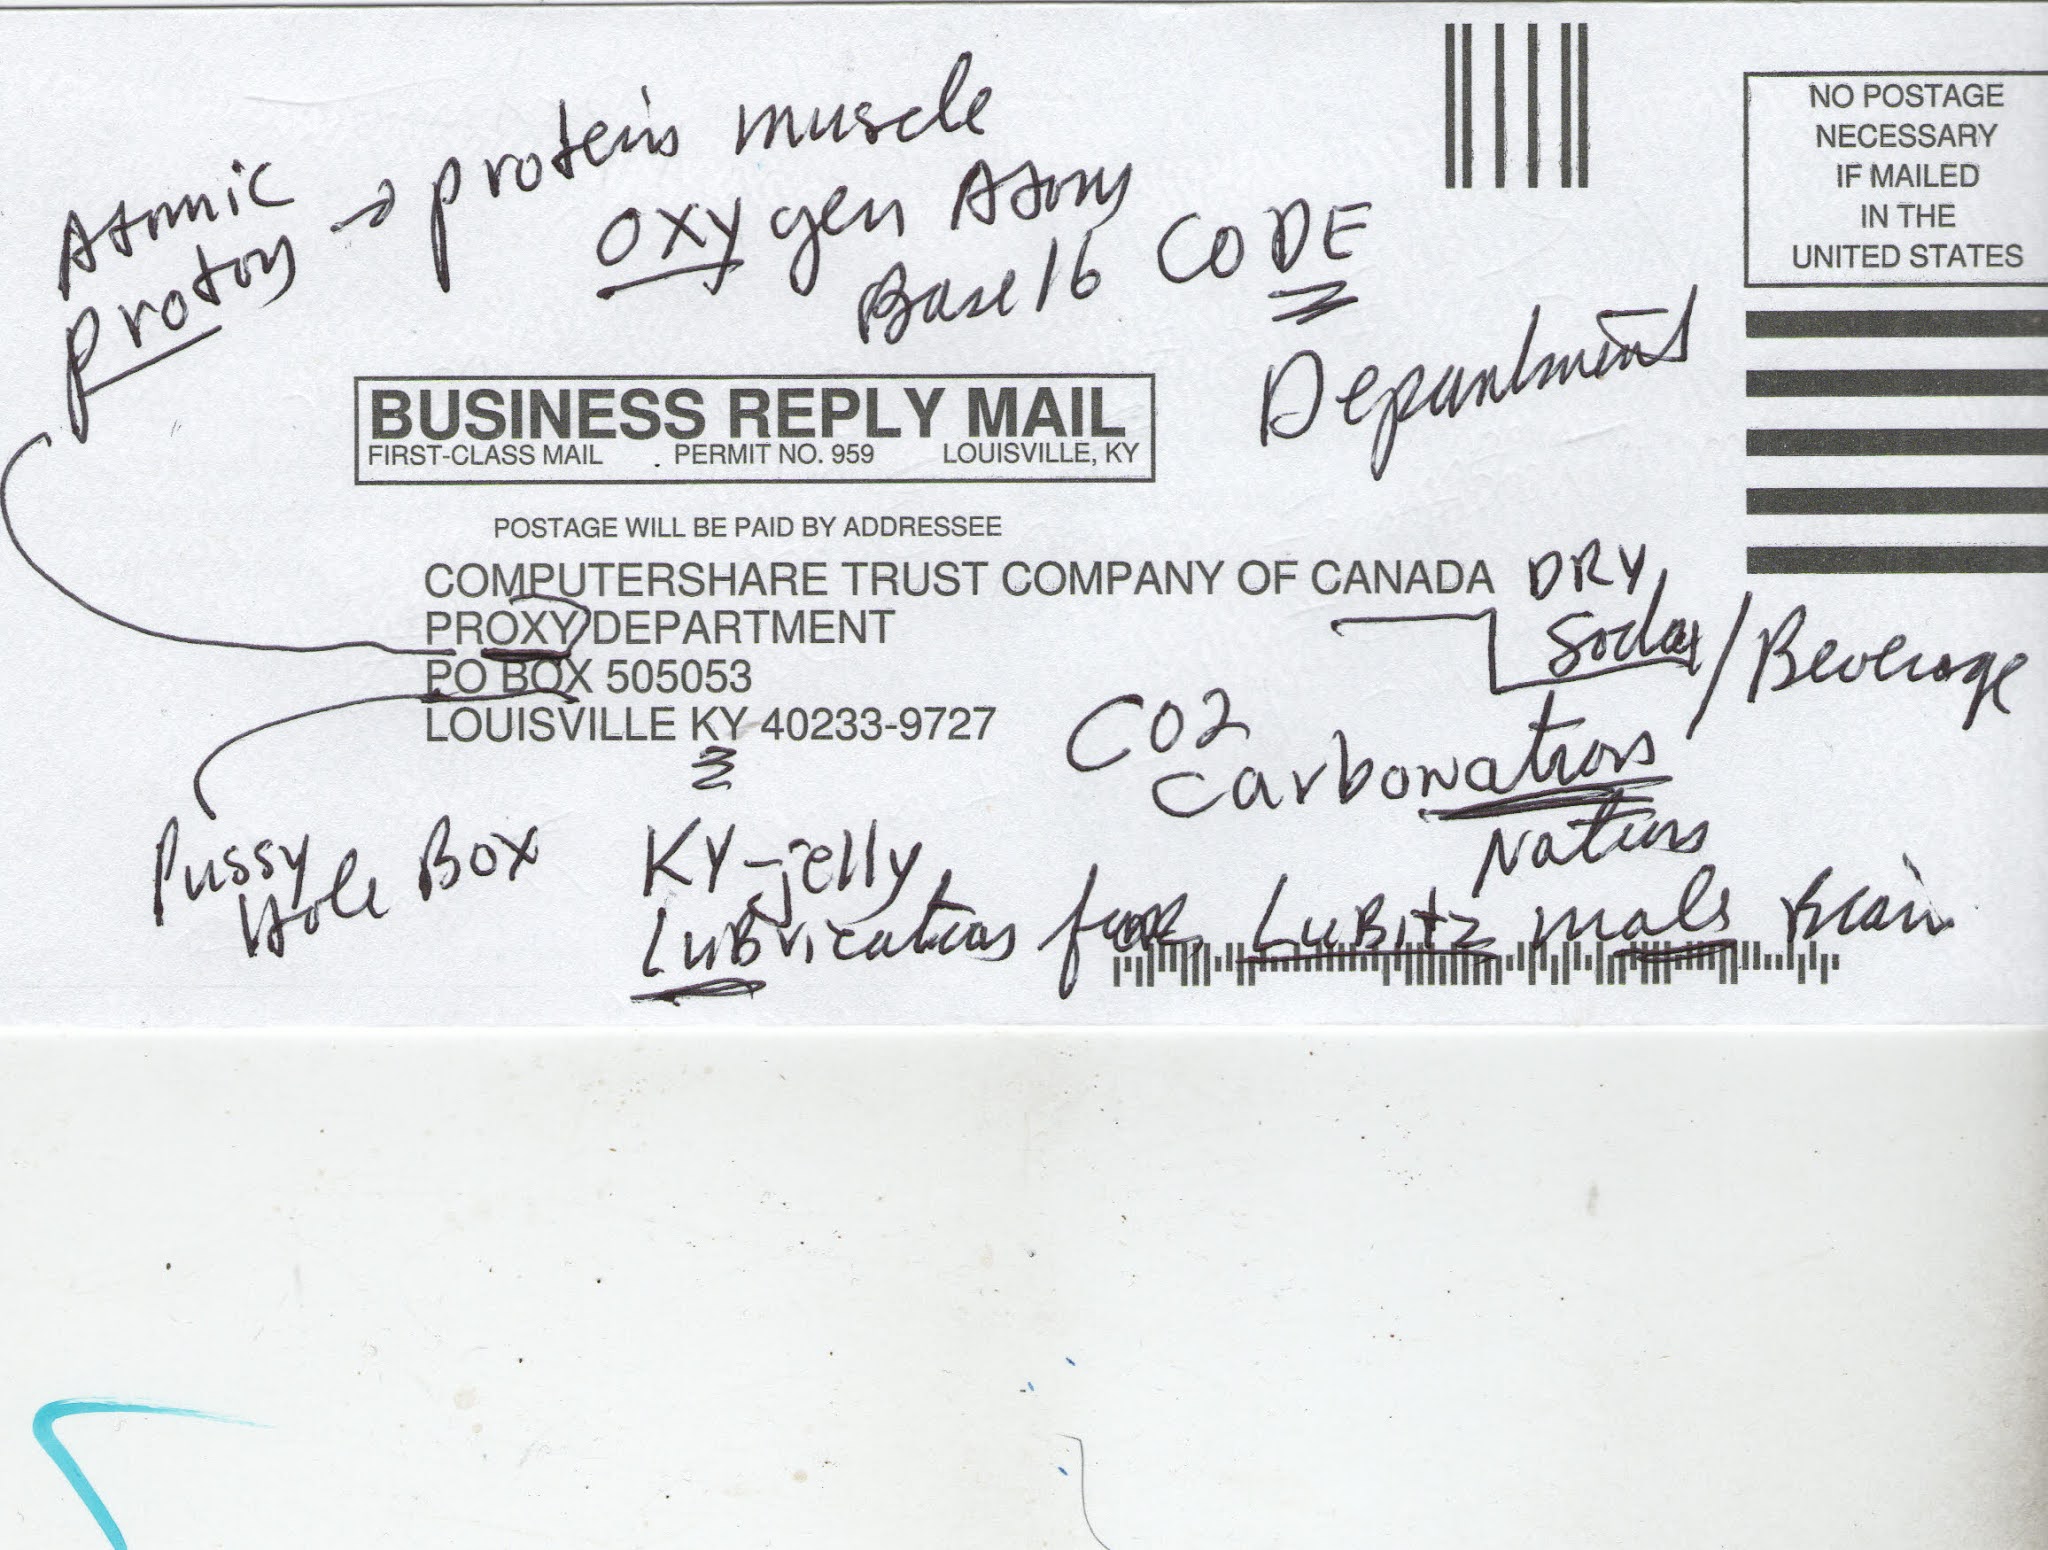 Atomic
Proton → protein muscle
oxygen Atoms
Base 16 CODE
Department
NO POSTAGE
NECESSARY
IF MAILED
IN THE
UNITED STATES
BUSINESS REPLY MAIL
FIRST-CLASS MAIL PERMIT NO. 959 LOUISVILLE, KY
POSTAGE WILL BE PAID BY ADDRESSEE
COMPUTERSHARE TRUST COMPANY OF CANADA DRY
PROXY DEPARTMENT
Soda / Beverage
PO BOX 505053
LOUISVILLE KY 40233-9727
CO2
Carbonation
Nation
Pussy
Hole Box
KY-jelly
Lubrication for LuBitz male brain